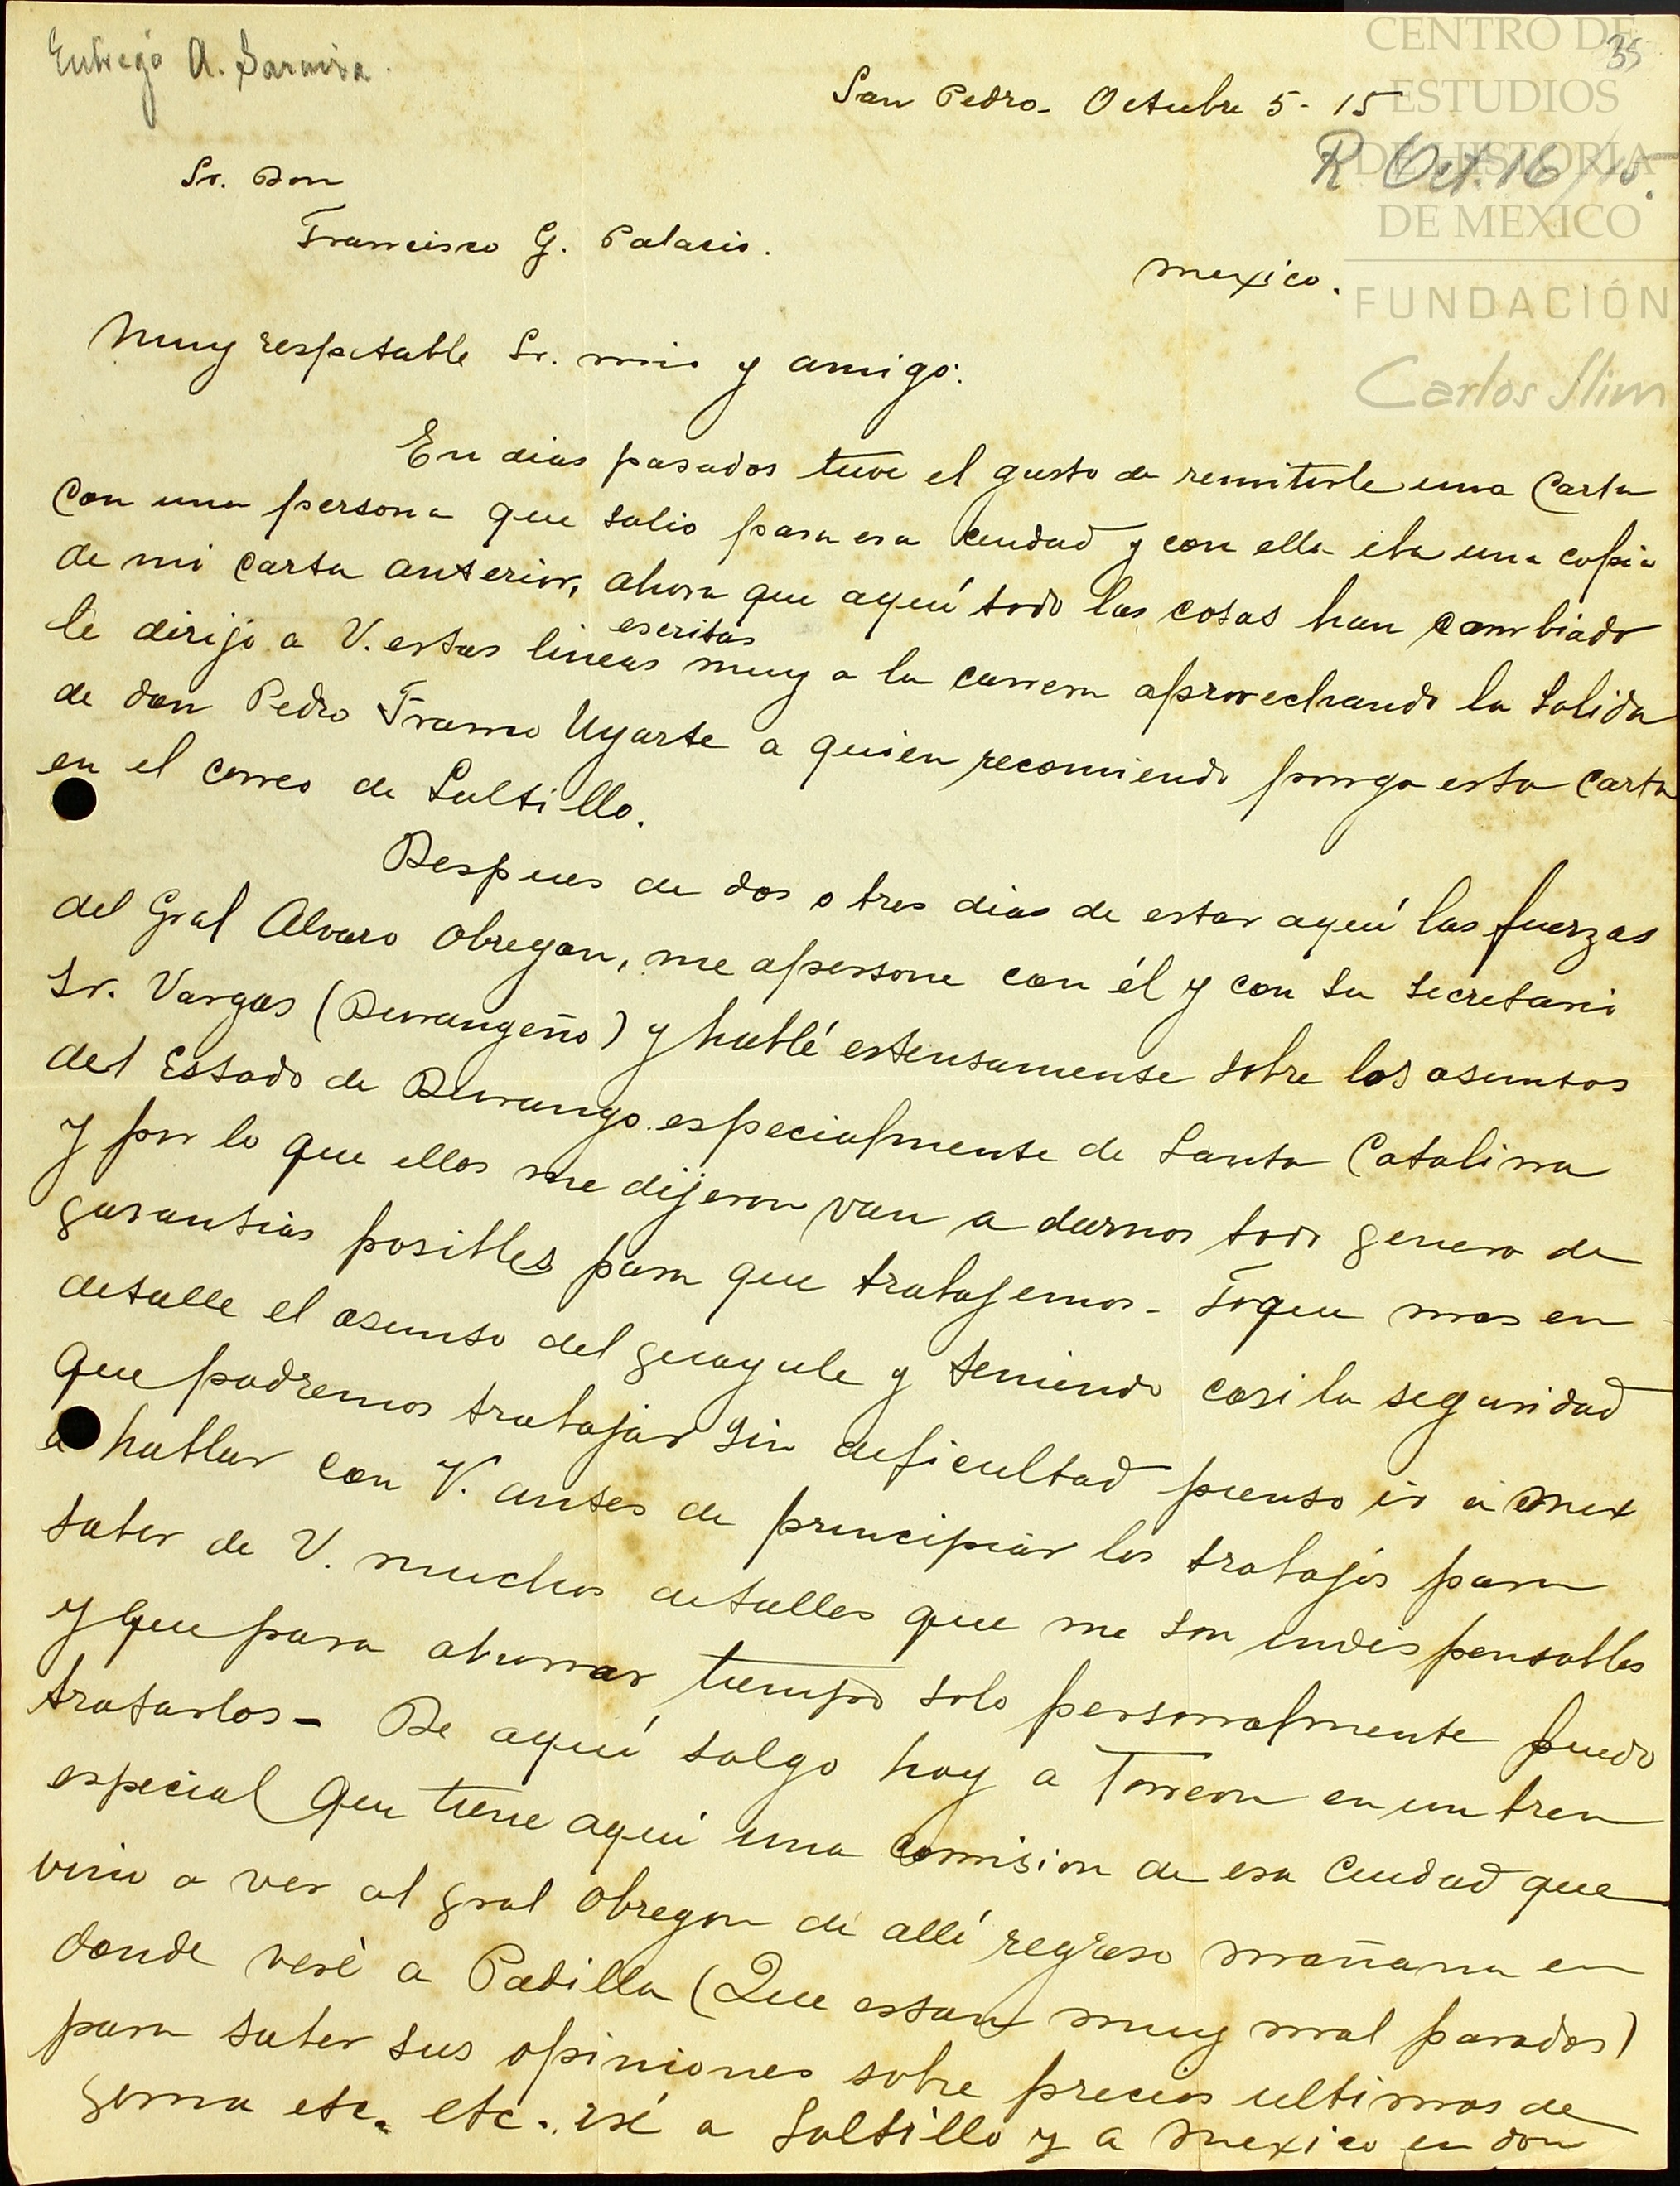 Entregó A. Sarmira.
35
San Pedro- Octubre 5- 15
R Oct. 16/15.
CENTRO DE
ESTUDIOS
DE HISTORIA
DE MEXICO
FUNDACIÓN
Carlos Slim
Sr. Don
Francisco G. Palacio.
Mexico.
Muy respetable Sr. mio y amigo:
En dias pasados tuve el gusto de remitirle una Carta
Con una persona que salio para esa ciudad y con ella iba una copia
de mi Carta anterior, ahora que aquí todo las cosas han cambiado
le dirijo a V. estas lineas escritas muy a la carrera aprovechando la salida
de don Pedro Franco Ugarte a quien recomiendo ponga esta Carta
en el correo de Saltillo.
Despues de dos o tres dias de estar aquí las fuerzas
del Gral Alvaro Obregon, me apersone con él y con su secretario
Sr. Vargas (Durangeño) y hablé estensamente sobre los asuntos
del Estado de Durango especialmente de Santa Catalina
y por lo que ellos me dijeron van a darnos todo genero de
garantias posibles para que trabajemos- Toque mas en
detalle el asunto del guayule y teniendo casi la seguridad
que podremos trabajar sin dificultad pienso ir a Mex
a hablar con V. antes de principiar los trabajos para
saber de V. muchos detalles que me son indispensables
y que para ahorrar tiempo solo personalmente puedo
tratarlos- De aquí salgo hoy a Torreon en un tren
especial que tiene aqui una comision de esa Ciudad que
vino a ver al gral Obregon de allí regreso mañana en
donde veré a Padilla (Que estan muy mal parados)
para saber sus opiniones sobre precios ultimos de
goma etc. etc. iré a Saltillo y a Mexico en don